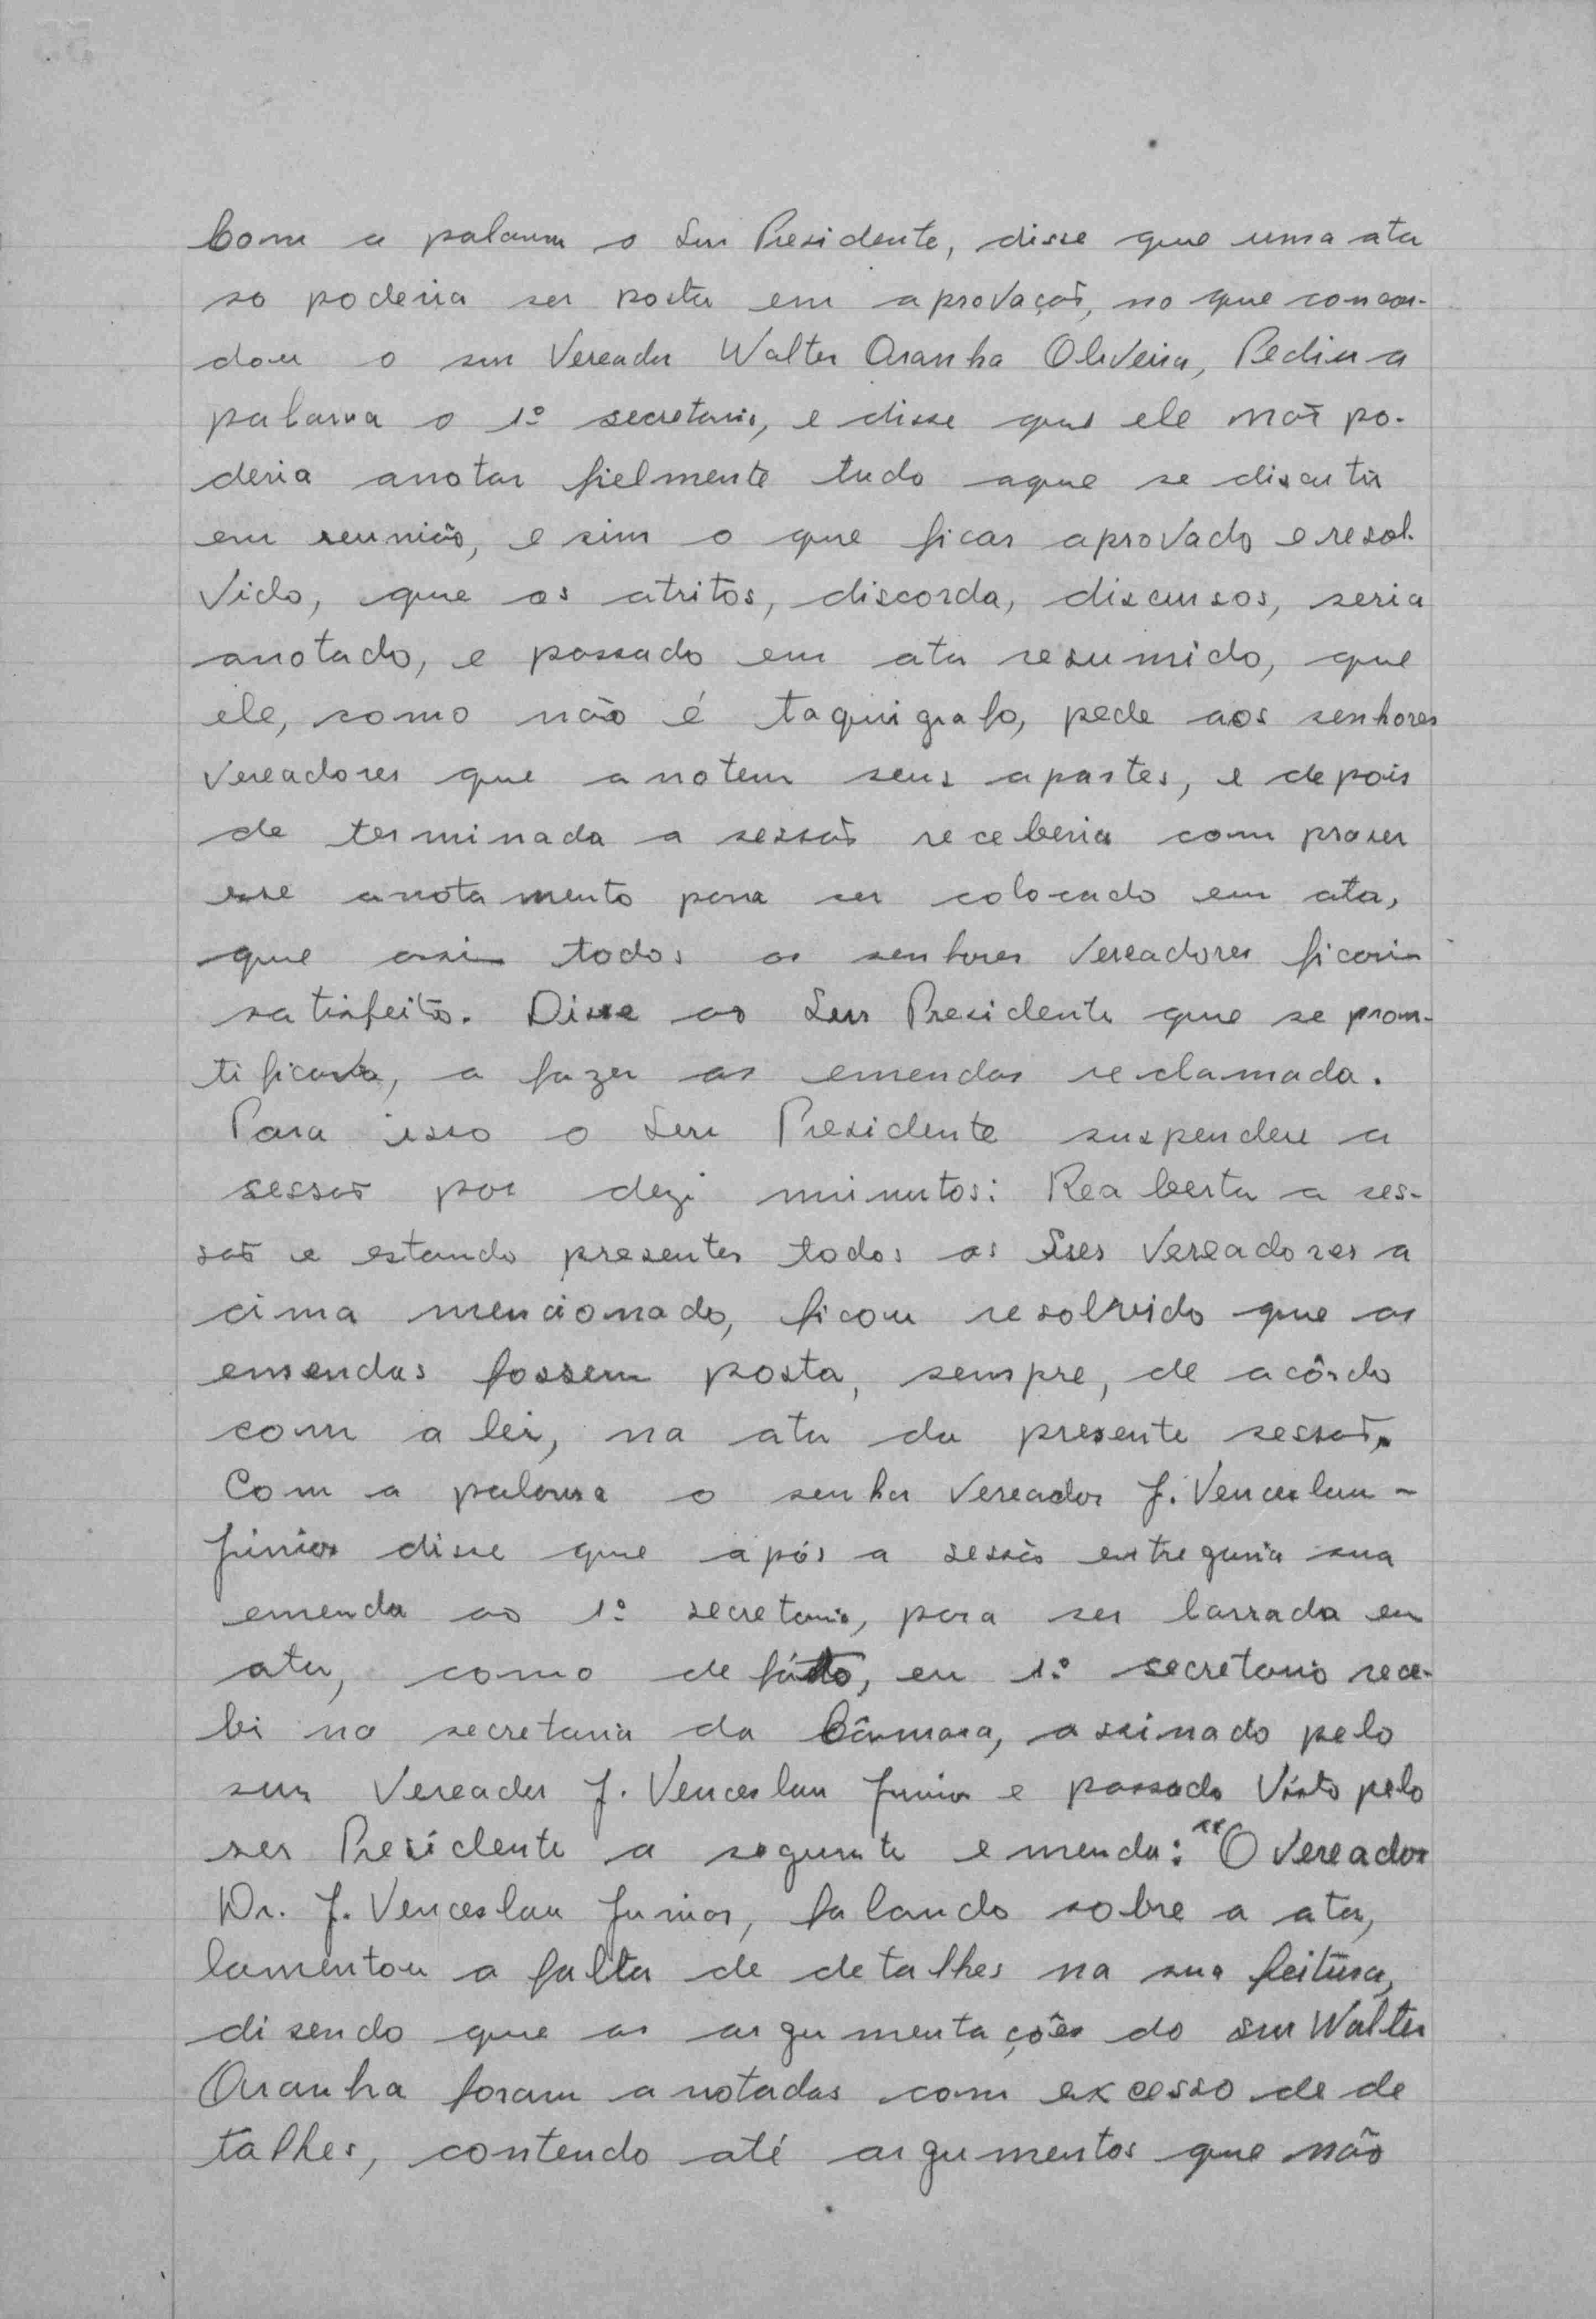 Com a palavra o Snr Presidente, disse que uma ata
so poderia ser posta em aprovação, no que concor-
dou o snr Vereador Walter Aranha Oliveira, Pediu a
palavra o 1º secretario, e disse que ele não po-
deria anotar fielmente tudo aque se discutir
em reunião, e sim o que ficar aprovado e resol-
vido, que os atritos, discorda, discursos, seria
anotado, e passado em ata resumido, que
ele, como não é taquigrafo, pede aos senhores
vereadores que anotem seus apartes, e depois
de terminada a sessão receberia com praser
esse anotamento para ser colocado em ata,
que assim todos os senhores Vereadores ficariam
satisfeitos. Disse ao Snr Presidente que se pron-
tificava, a fazer as emendas reclamada.
Para isso o Snr Presidente suspendeu a
sessão por dezi minutos: Reaberta a ses-
são e estando presentes todos os Snres Vereadores a
cima mencionado, ficou resolvido que as
emendas fossem posta, sempre, de acôrdo
com a lei, na ata da presente sessão.
Com a palavra o senhor Vereador J. Venceslau -
Júnior disse que após a sessão entregaria sua
emenda ao 1º secretario, para ser larrada em
ata, como de fáto, eu 1º secretario rece-
bi na secretaria da Câmara, assinado pelo
snr Vereador J. Venceslau Junior e passado Visto pelo
snr Presidente a seguinte emenda: "O Vereador
Dr. J. Venceslau Junior, falando sobre a ata,
lamentou a falta de detalhes na sua feitura,
disendo que as argumentações do snr Walter
Aranha foram anotadas com excesso de de
talhes, contendo até argumentos que não